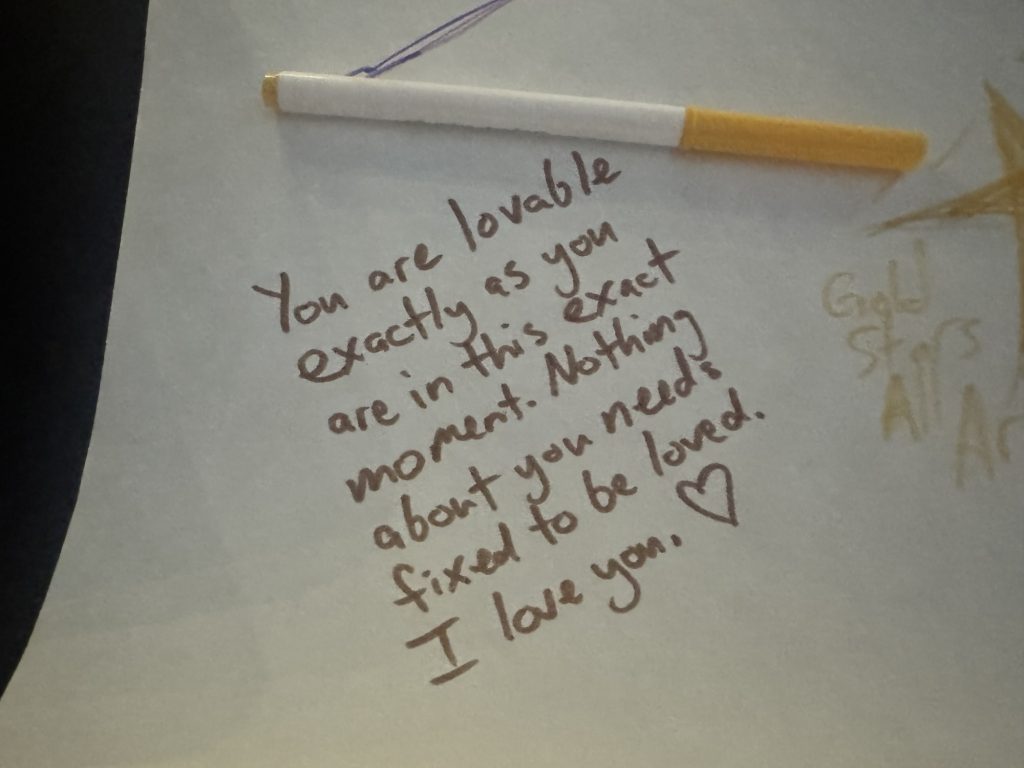 You are lovable
exactly as you
are in this exact
moment. Nothing
about you needs
fixed to be loved.
I love you. ♡
Gold
Stars
All Ar